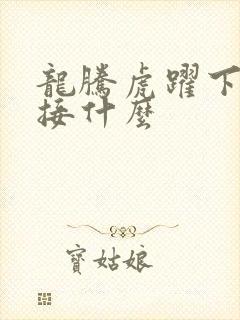 龍騰虎躍下
接什麼
寶姑娘